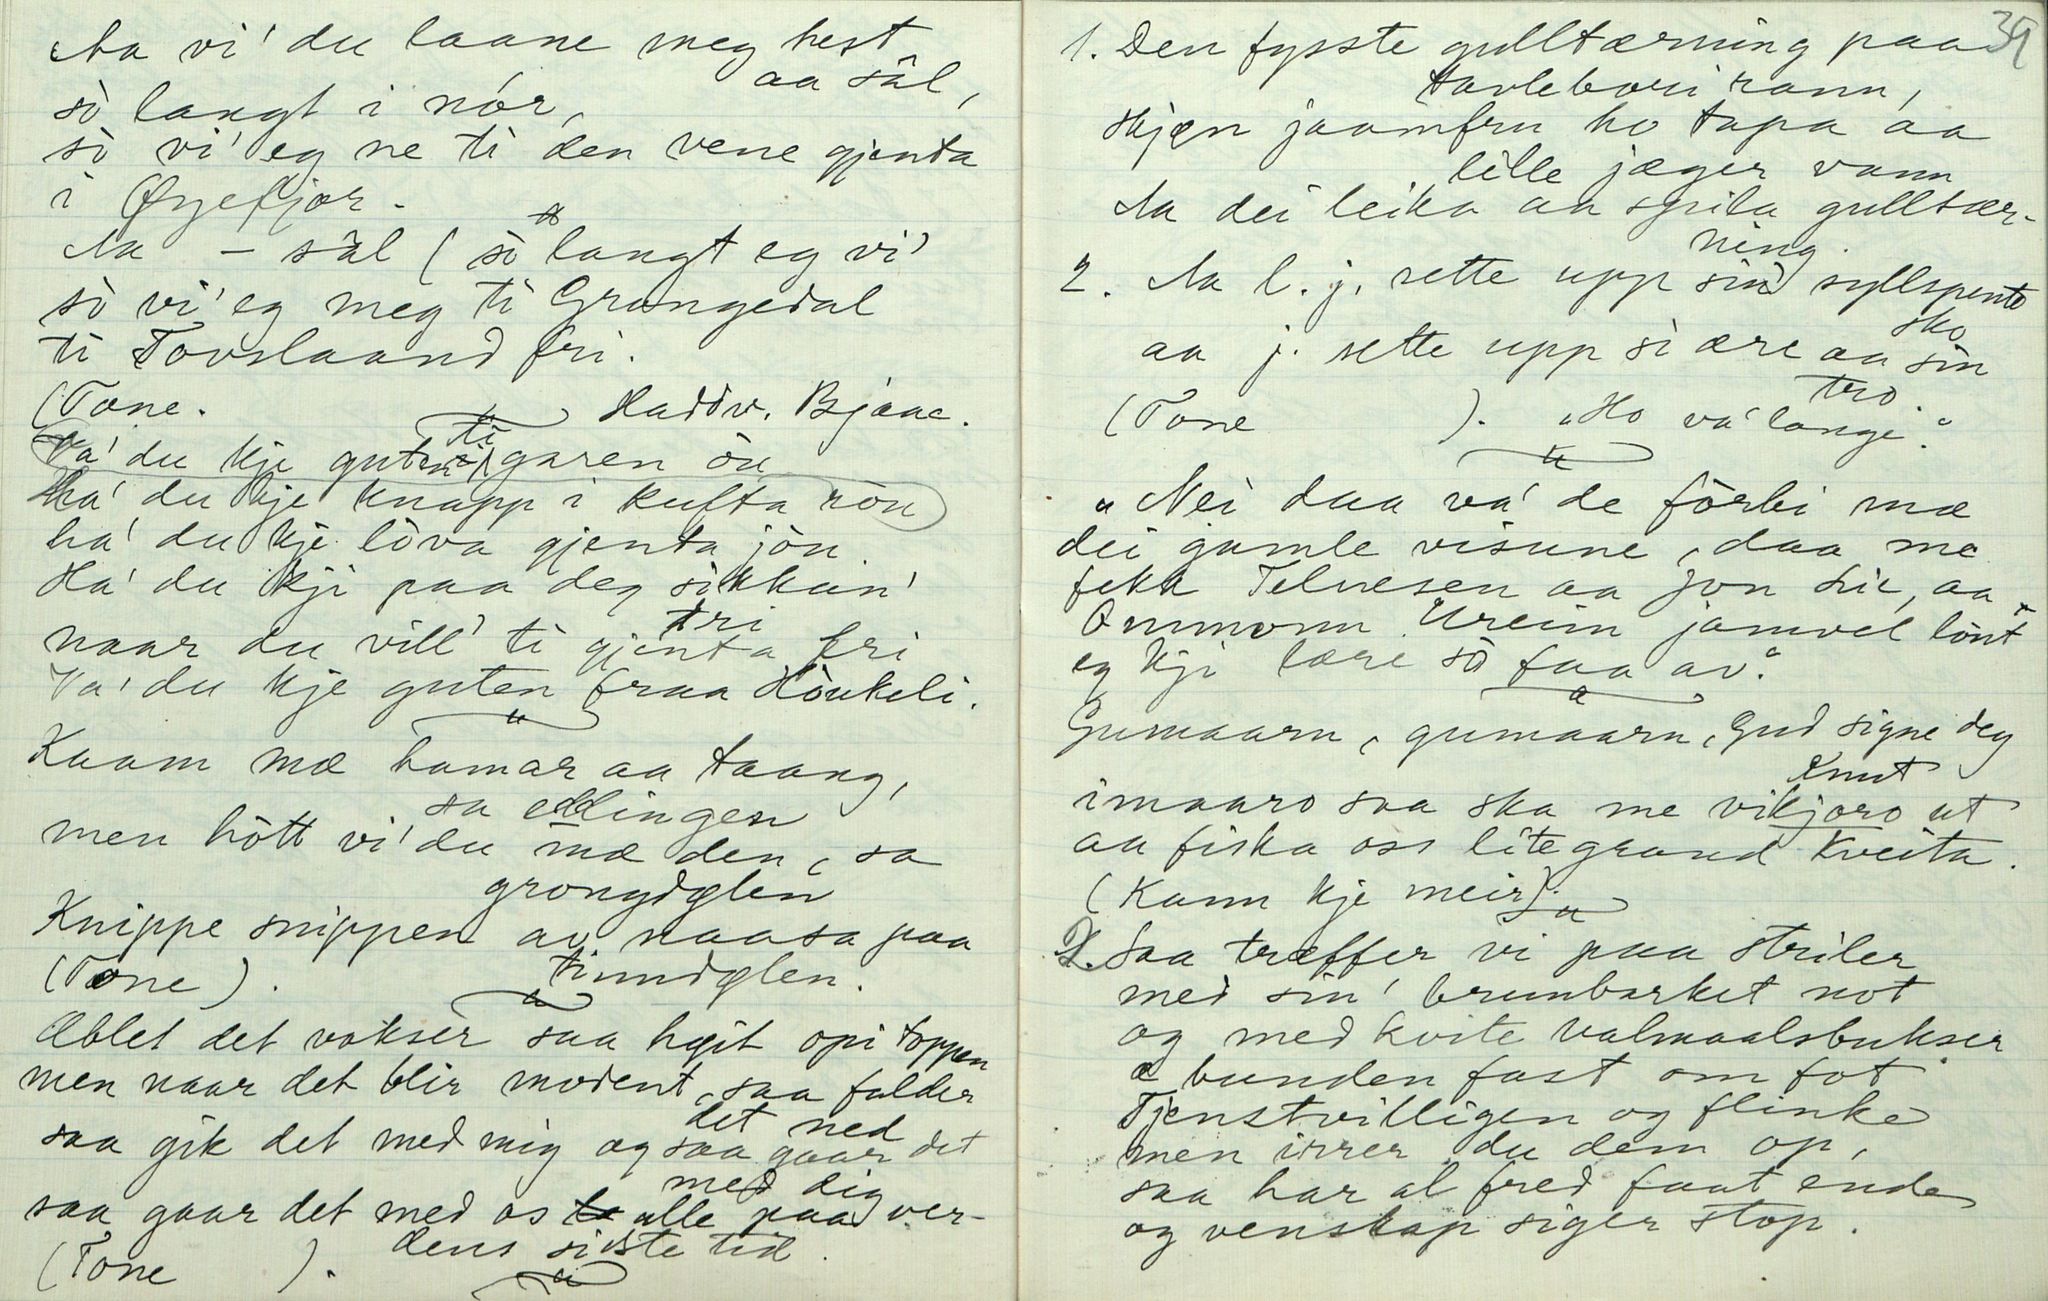 Aa vi' du laane meg hest
aa sål,
sò langt i nór,
sò vi' eg ne ti den vene gjenta
i Øyefjor.
Aa – sål (sò langt eg vi'
sò vi' eg meg ti Grungedal
ti Tovslaand fri.
(Tone. Haddv. Bjåae.
Va' du kje guten ti garen òu
Ha' du kje knapp i kufta ròu
ha' du kje lòva gjenta jòu
Ha' du kji paa deg sikkein'
naar du vill' ti gjenta fri
Va' du kje guten fraa Hòukeli.
Kaam mæ hamar aa taang,
sa eldingen
men hòtt vi' du mæ den, sa
grongdølen
Knippe snippen av naasa paa
tinndølen.
(Tone).
Æblet det vokser saa høit opi toppen
men naar det blir modent, saa falder
det ned
saa gik det med mig og saa gaar det
med dig
saa gaar det med os alle paa ver-
dens sidste tid.
(Tone ).
39
1. Den fysste gulltærning paa
tavlebori rann,
Skjøn jaamfru ho tapa aa
lille jæger vann
Aa dei leika aa spila gulltær-
ning.
2. Aa l. j. sette upp sin syllspente
sko
aa j. sette upp si ære aa sin
tro
(Tone ). "Ho va' longe."
"Nei daa va' de fòrbi mæ
dei gamle visune, daa me
fekk Telnesen aa Jon Lie, aa
Ommonn Ureim jamvel lònt
eg kji lære sò faa av."
Gumaarn, gumaarn, Gud signe deg
Knut
imaaro saa ska me vikjoro ut
aa fiska oss lite grand Kveita.
(Kann kje meir).
2. Saa træffer vi paa striler
med sin' brunbarket not
og med kvite valmaalsbukser
bunden fast om fot
Tjenstvilligen og flinke
men irrer du dem op,
saa har al fred faat ende
og venskap siger stop.